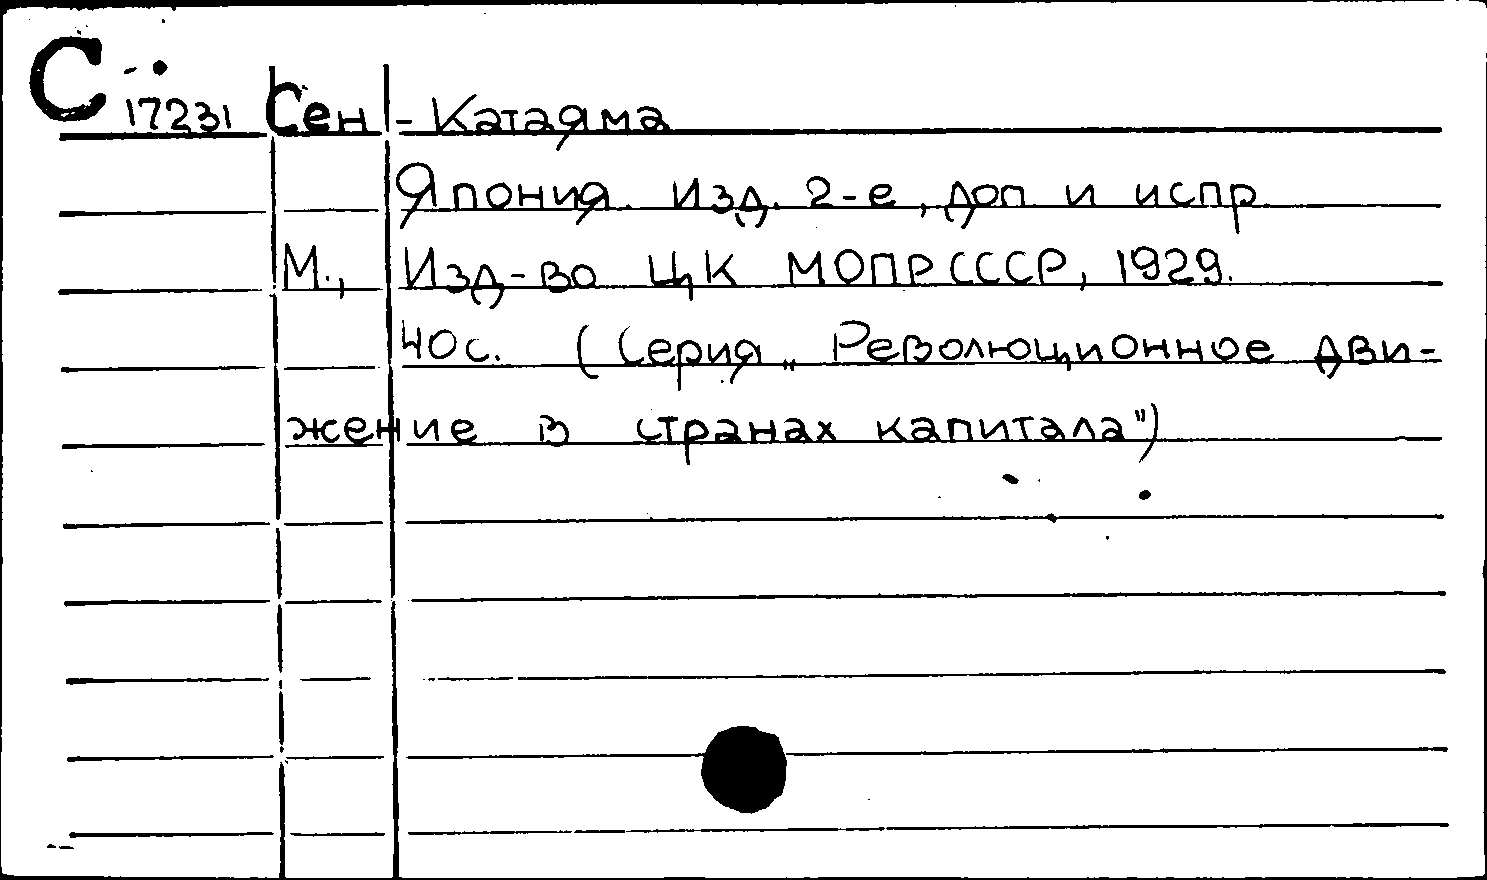 С 17231 Сен-Катаяма
Япония. Изд. 2-е, доп и испр
М., Изд-во ЦК МОПР СССР, 1929.
40с. (Серия „Революционное дви-
жение в странах капитала")